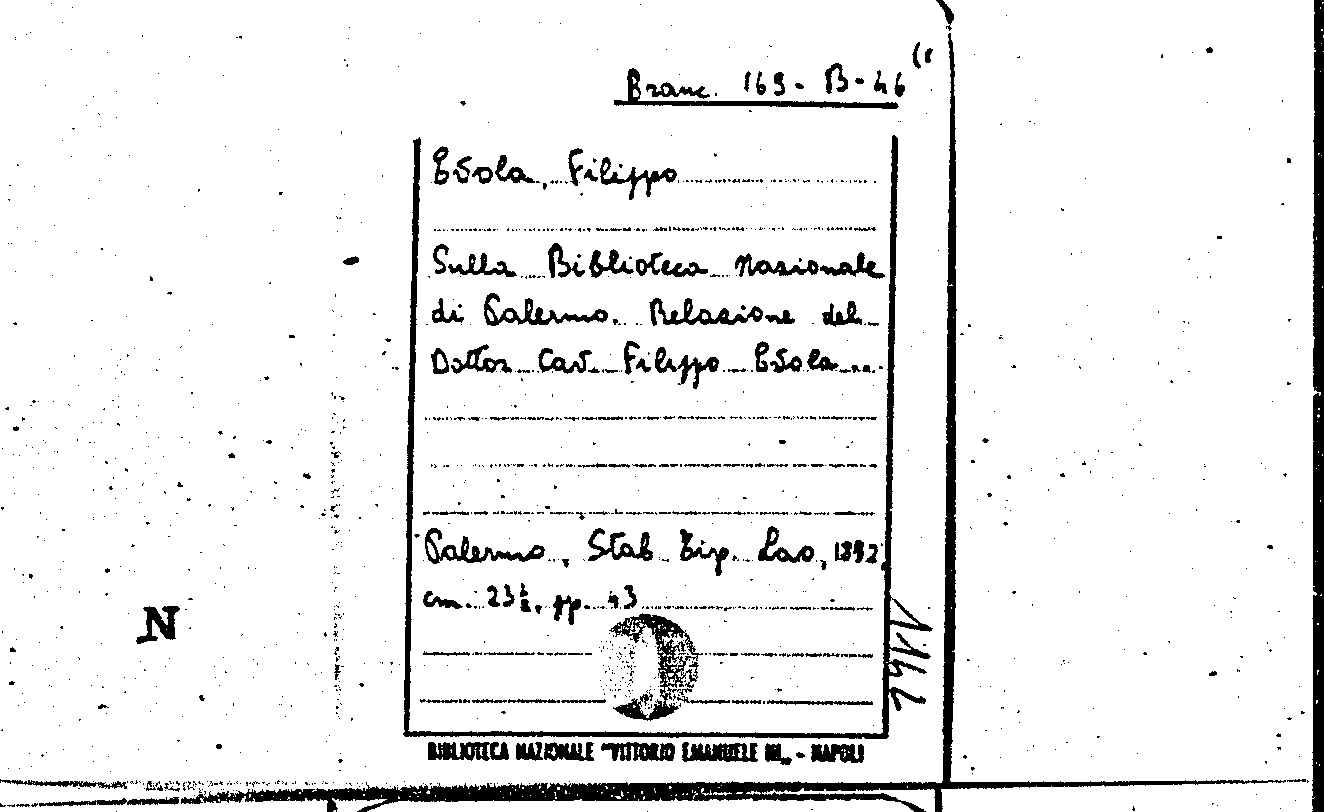 Branc. 169 - B - 46 (1
Evola, Filippo
Sulla Biblioteca Nazionale
di Palermo. Relazione del
Dottor Cav. Filippo Evola ...
Palermo, Stab Tip. Lao, 1892,
cm. 23½, pp. 43
N
BIBLIOTECA NAZIONALE "VITTORIO EMANUELE III„ - NAPOLI